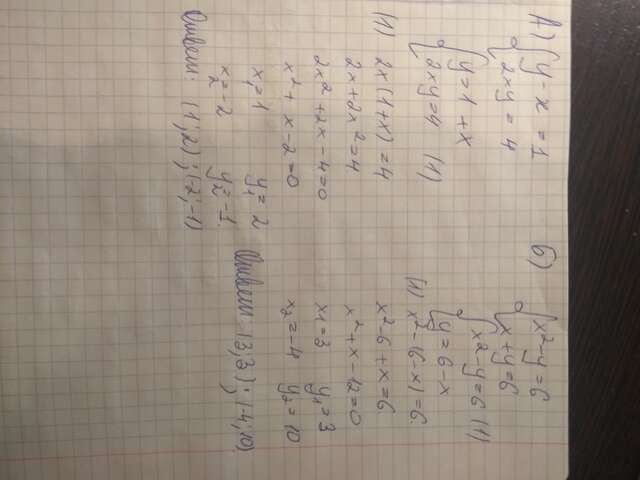 А) { y - x = 1
2xy = 4
{ y = 1 + x
2xy = 4 (1)
(1) 2x(1+x) = 4
2x + 2x² = 4
2x² + 2x - 4 = 0
x² + x - 2 = 0
x₁ = 1 y₁ = 2
x₂ = -2 y₂ = -1.
Ответ: (1;2); (-2;-1)
Б)
{ x² - y = 6
x + y = 6
{ x² - y = 6 (1)
y = 6 - x
(1) x² - (6 - x) = 6
x² - 6 + x = 6
x² + x - 12 = 0
x₁ = 3 y₁ = 3
x₂ = -4 y₂ = 10
Ответ: (3;3); (-4;10)